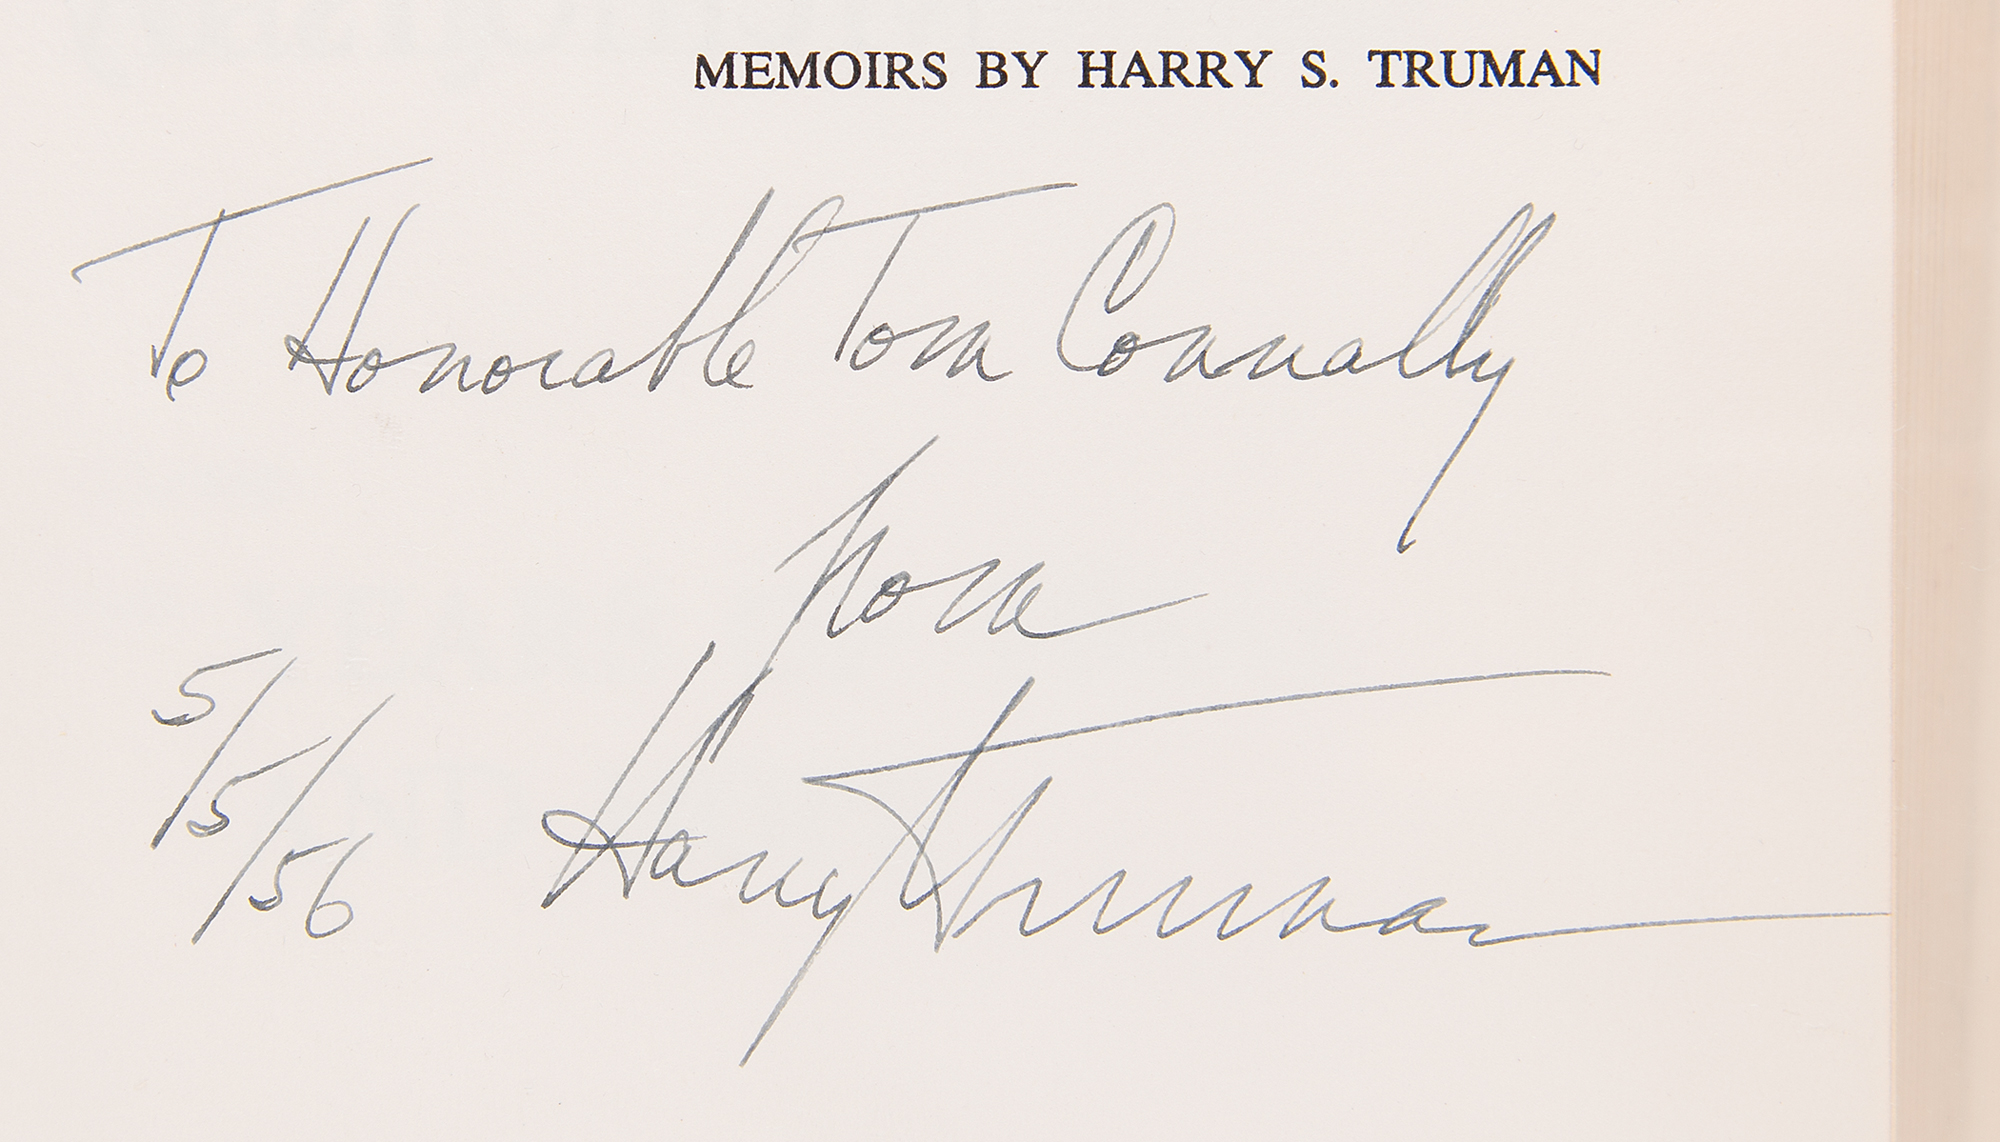 MEMOIRS BY HARRY S. TRUMAN
To Honorable Tom Connally
from
5/5/56
Harry Truman